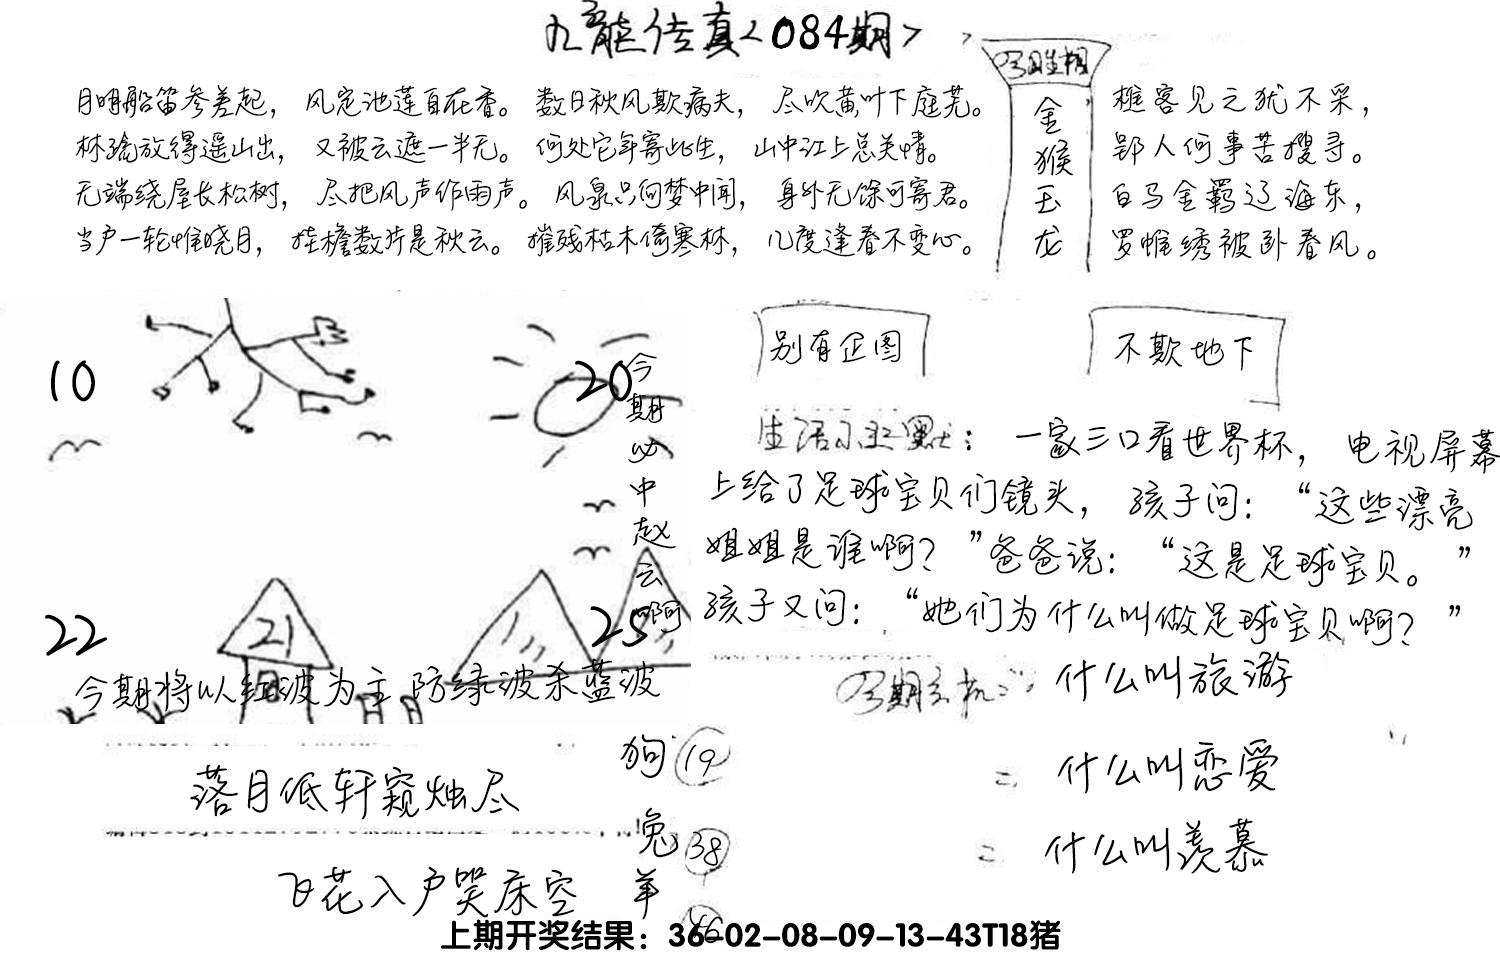 九龙传真<084期>
月明船笛参差起，风定池莲自在香。数日秋风欺病夫，尽吹黄叶下庭芜。
林疏放得遥山出，又被云遮一半无。何处它年寄此生，山中江上总关情。
无端绕屋长松树，尽把风声作雨声。风泉只向梦中闻，身外无馀可寄君。
当户一轮惟晓月，挂檐数片是秋云。摧残枯木倚寒林，几度逢春不变心。
金
猴
玉
龙
樵客见之犹不采，
郢人何事苦搜寻。
白马金羁辽海东，
罗帷绣被卧春风。
10
20
22
21
25
今期必中赵云啊
今期将以红波为主防绿波杀蓝波
别有企图
不欺地下
生活小幽默：一家三口看世界杯，电视屏幕
上给了足球宝贝们镜头，孩子问：“这些漂亮
姐姐是谁啊？”爸爸说：“这是足球宝贝。”
孩子又问：“她们为什么叫做足球宝贝啊？”
什么叫旅游
= 什么叫恋爱
= 什么叫羡慕
落月低轩窥烛尽
飞花入户哭床空
狗 19
兔 38
羊 46
上期开奖结果：36-02-08-09-13-43T18猪